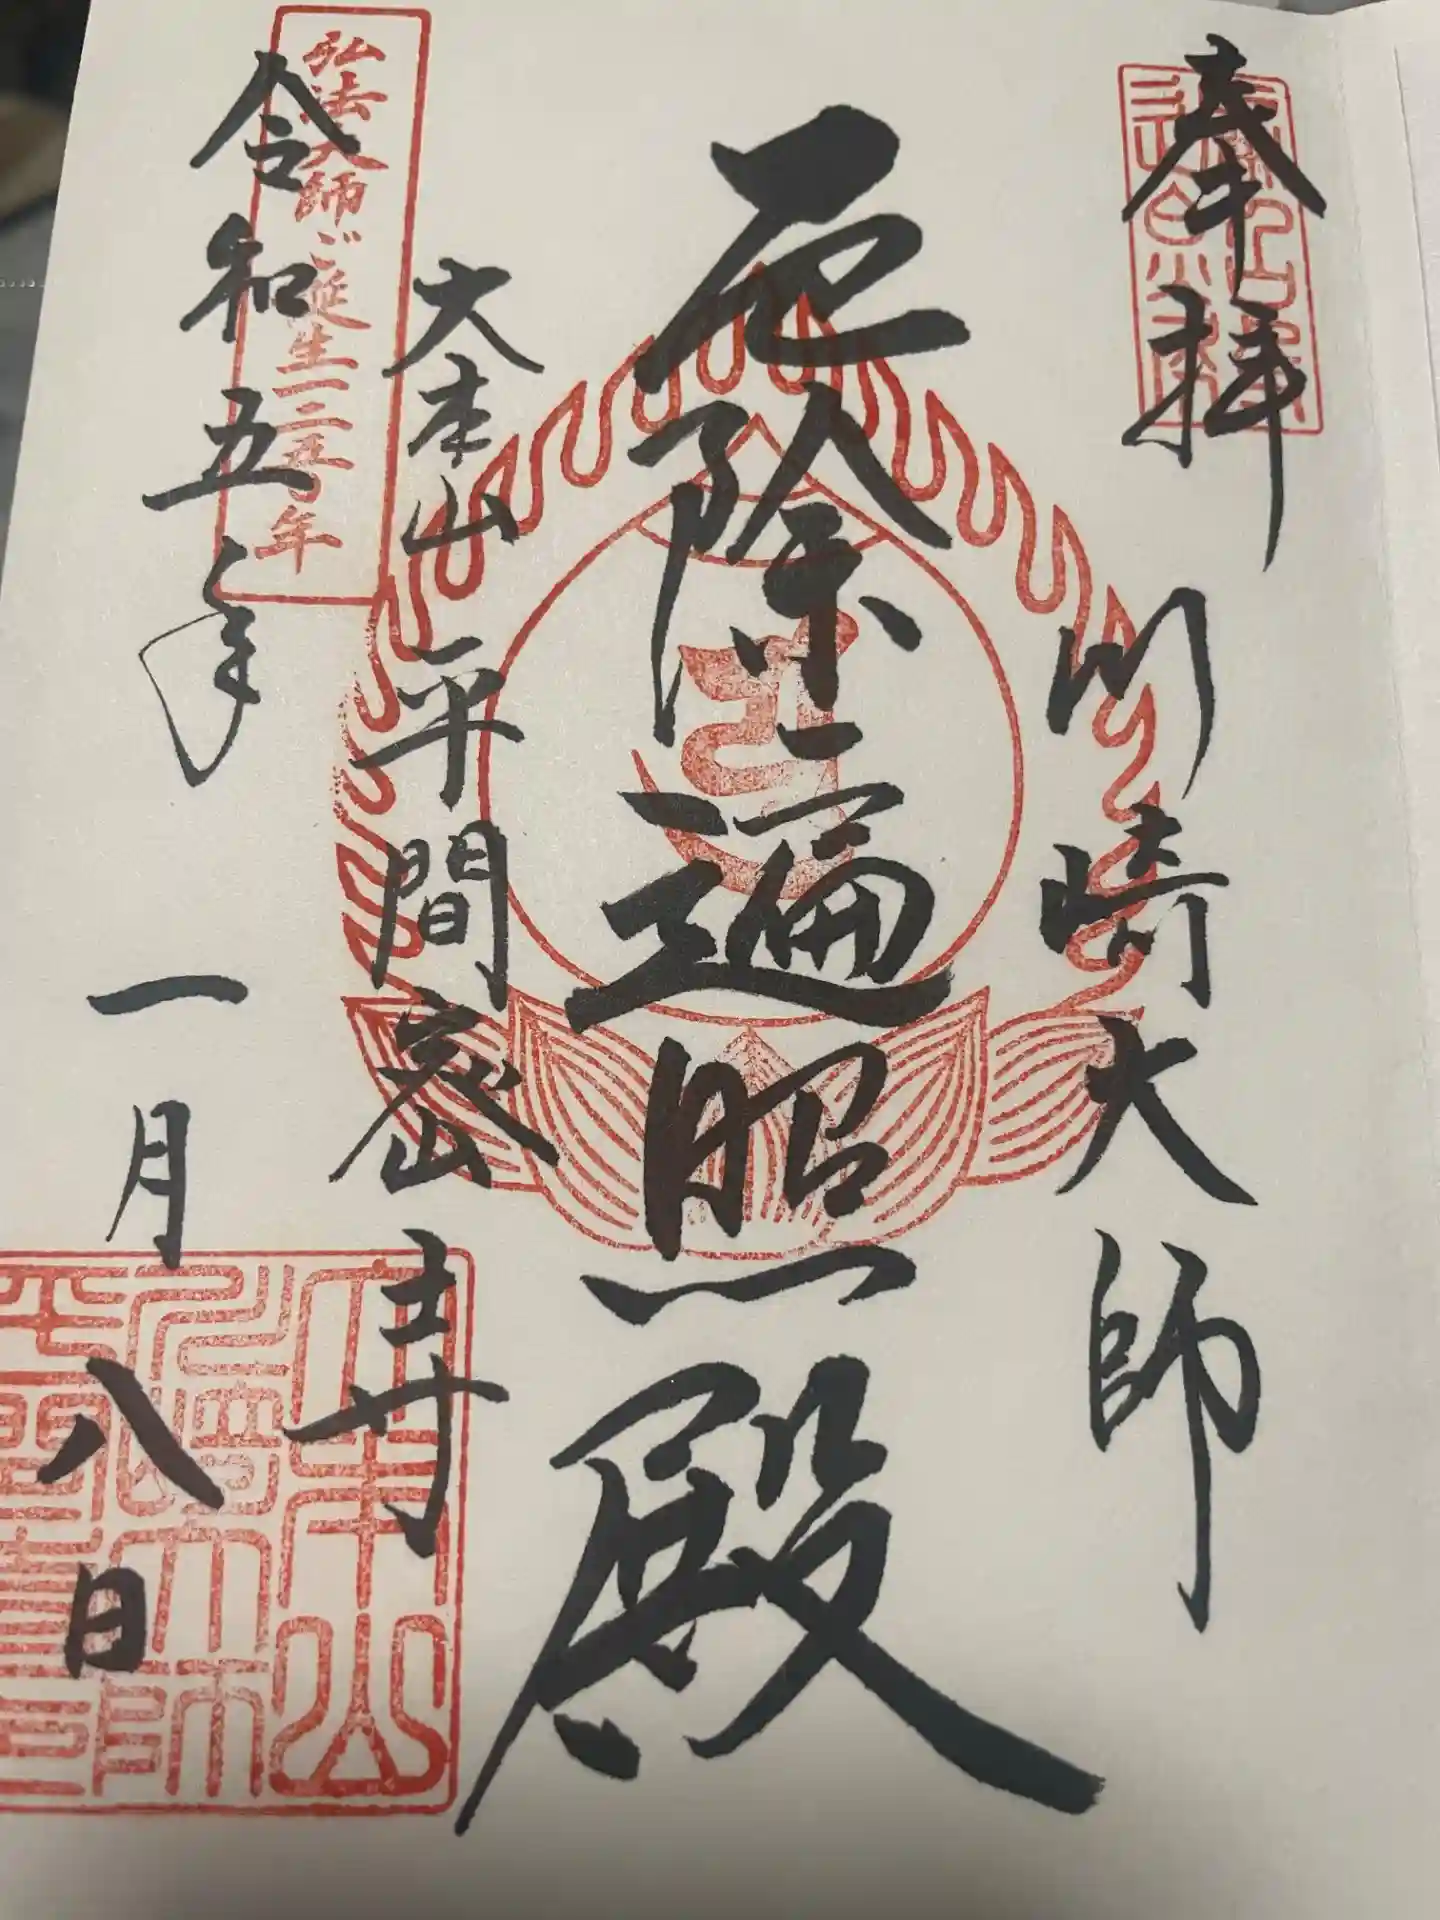 奉拝
川崎大師
厄除遍照殿
大本山 平間密寺
弘法大師ご誕生一二五〇年
令和五年 一月 八日